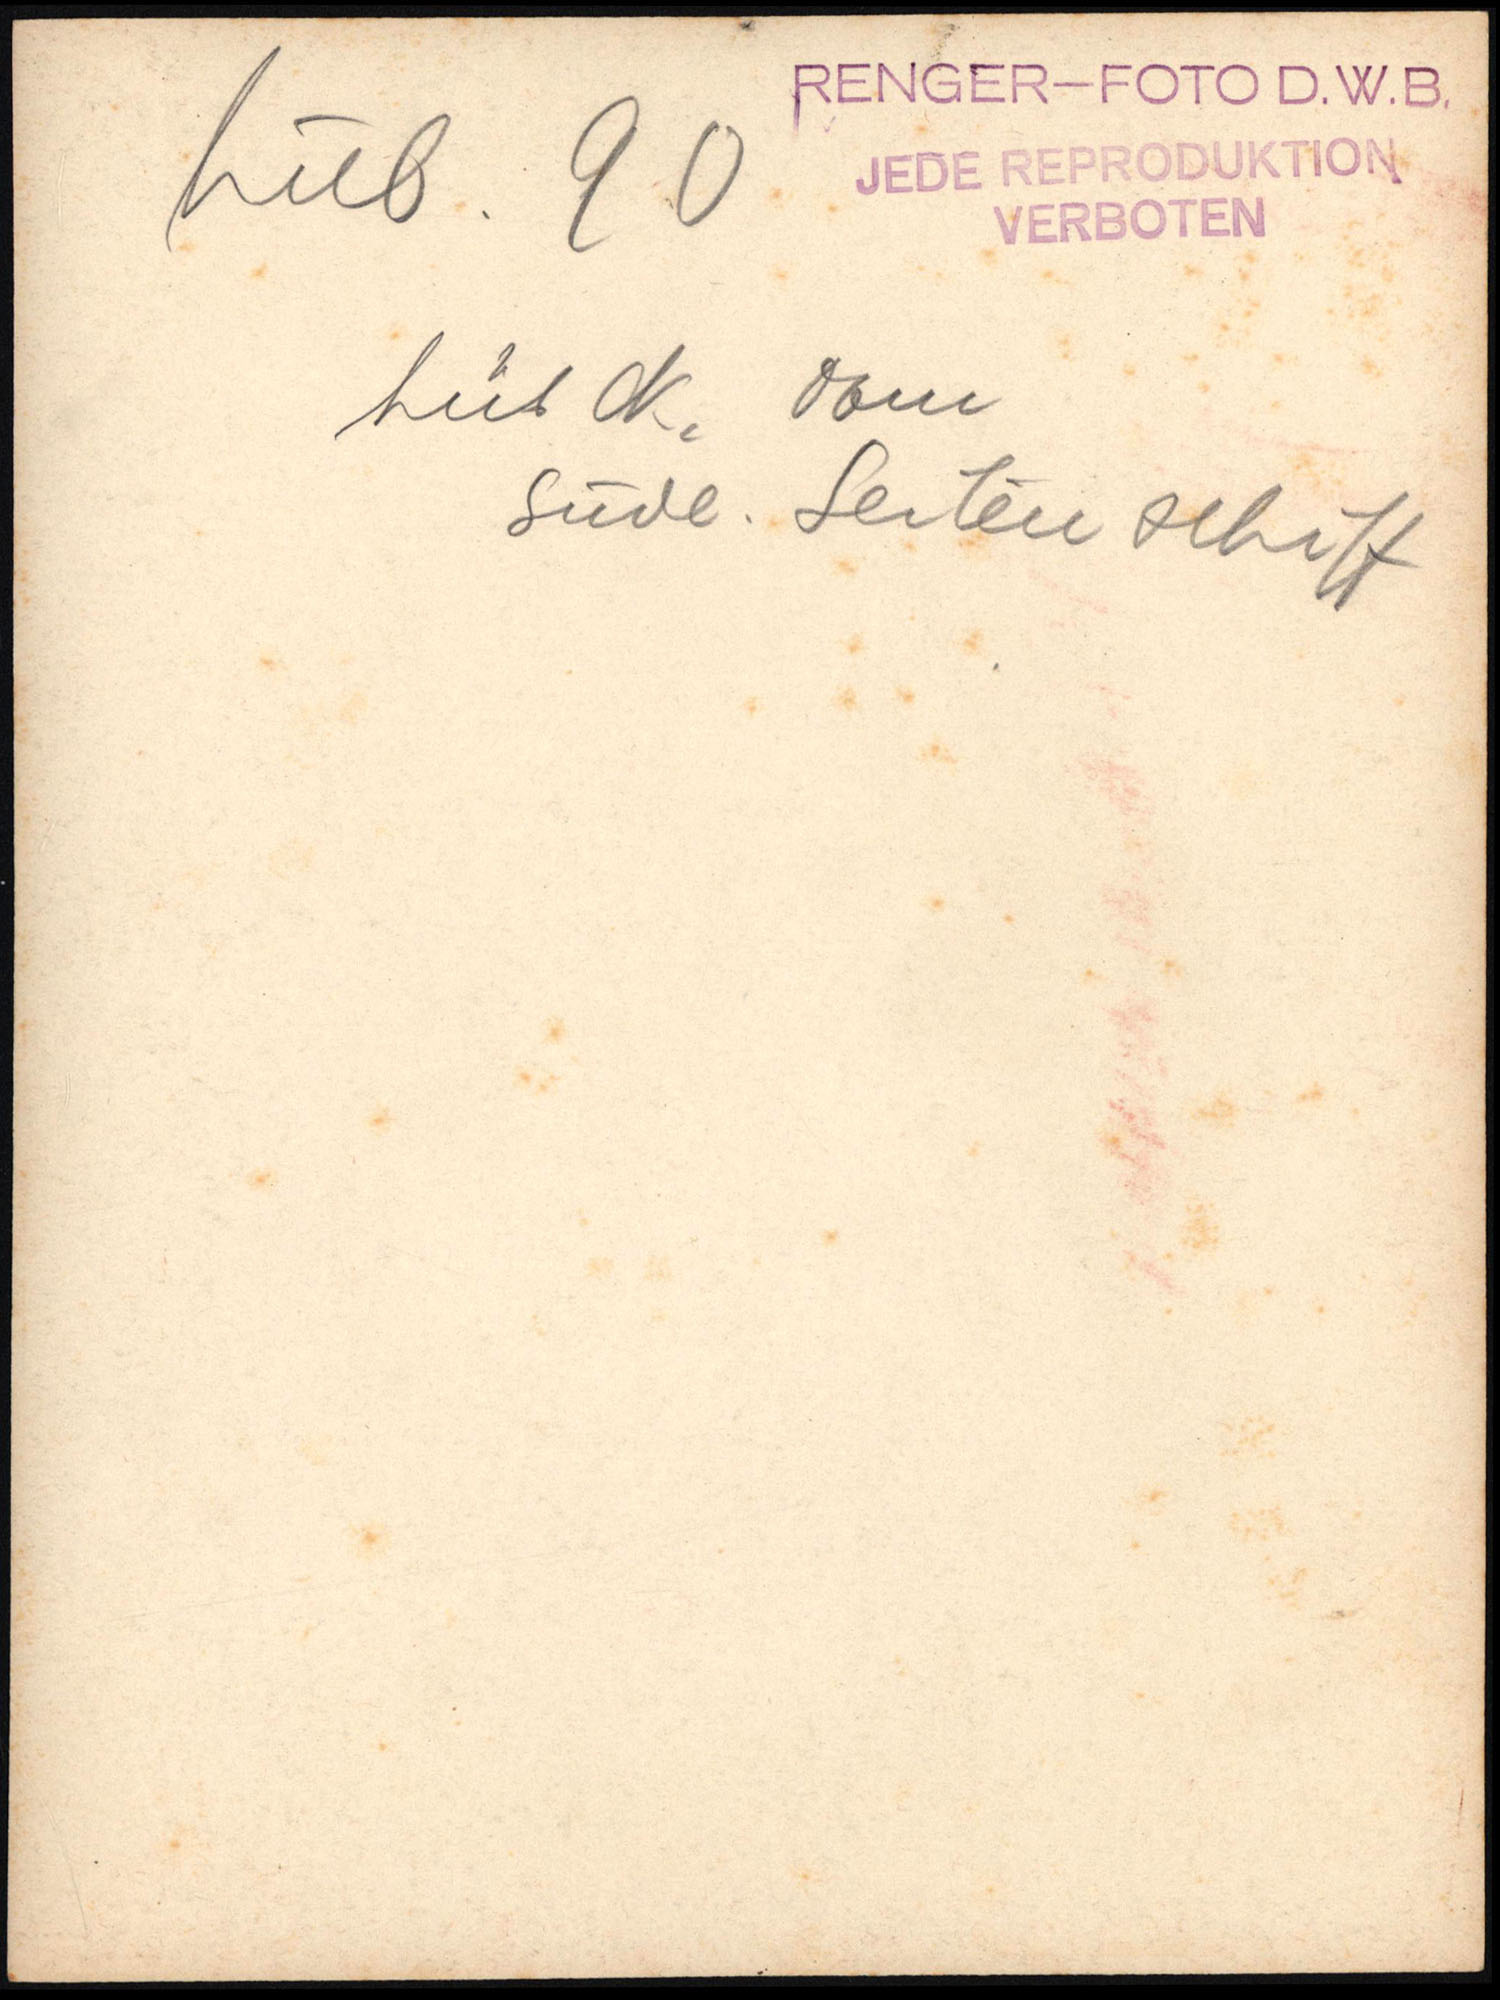 Lüb. 90
RENGER–FOTO D.W.B.
JEDE REPRODUKTION
VERBOTEN
Lübck. Dom
südl. Seitenschiff